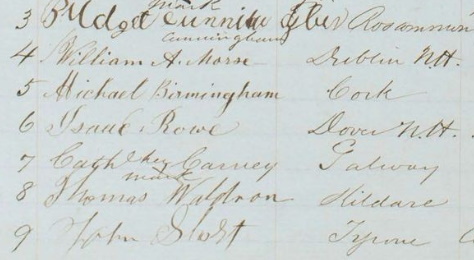 mark
3 Bridget Roscommon
Cunningham
4 William A. Morse Dublin N.H.
5 Michael Birmingham Cork
6 Isaac Rowe Dover N.H.
7 Cath her Carney Galway
mark
8 Thomas Waldron Kildare
9 John Tyrone